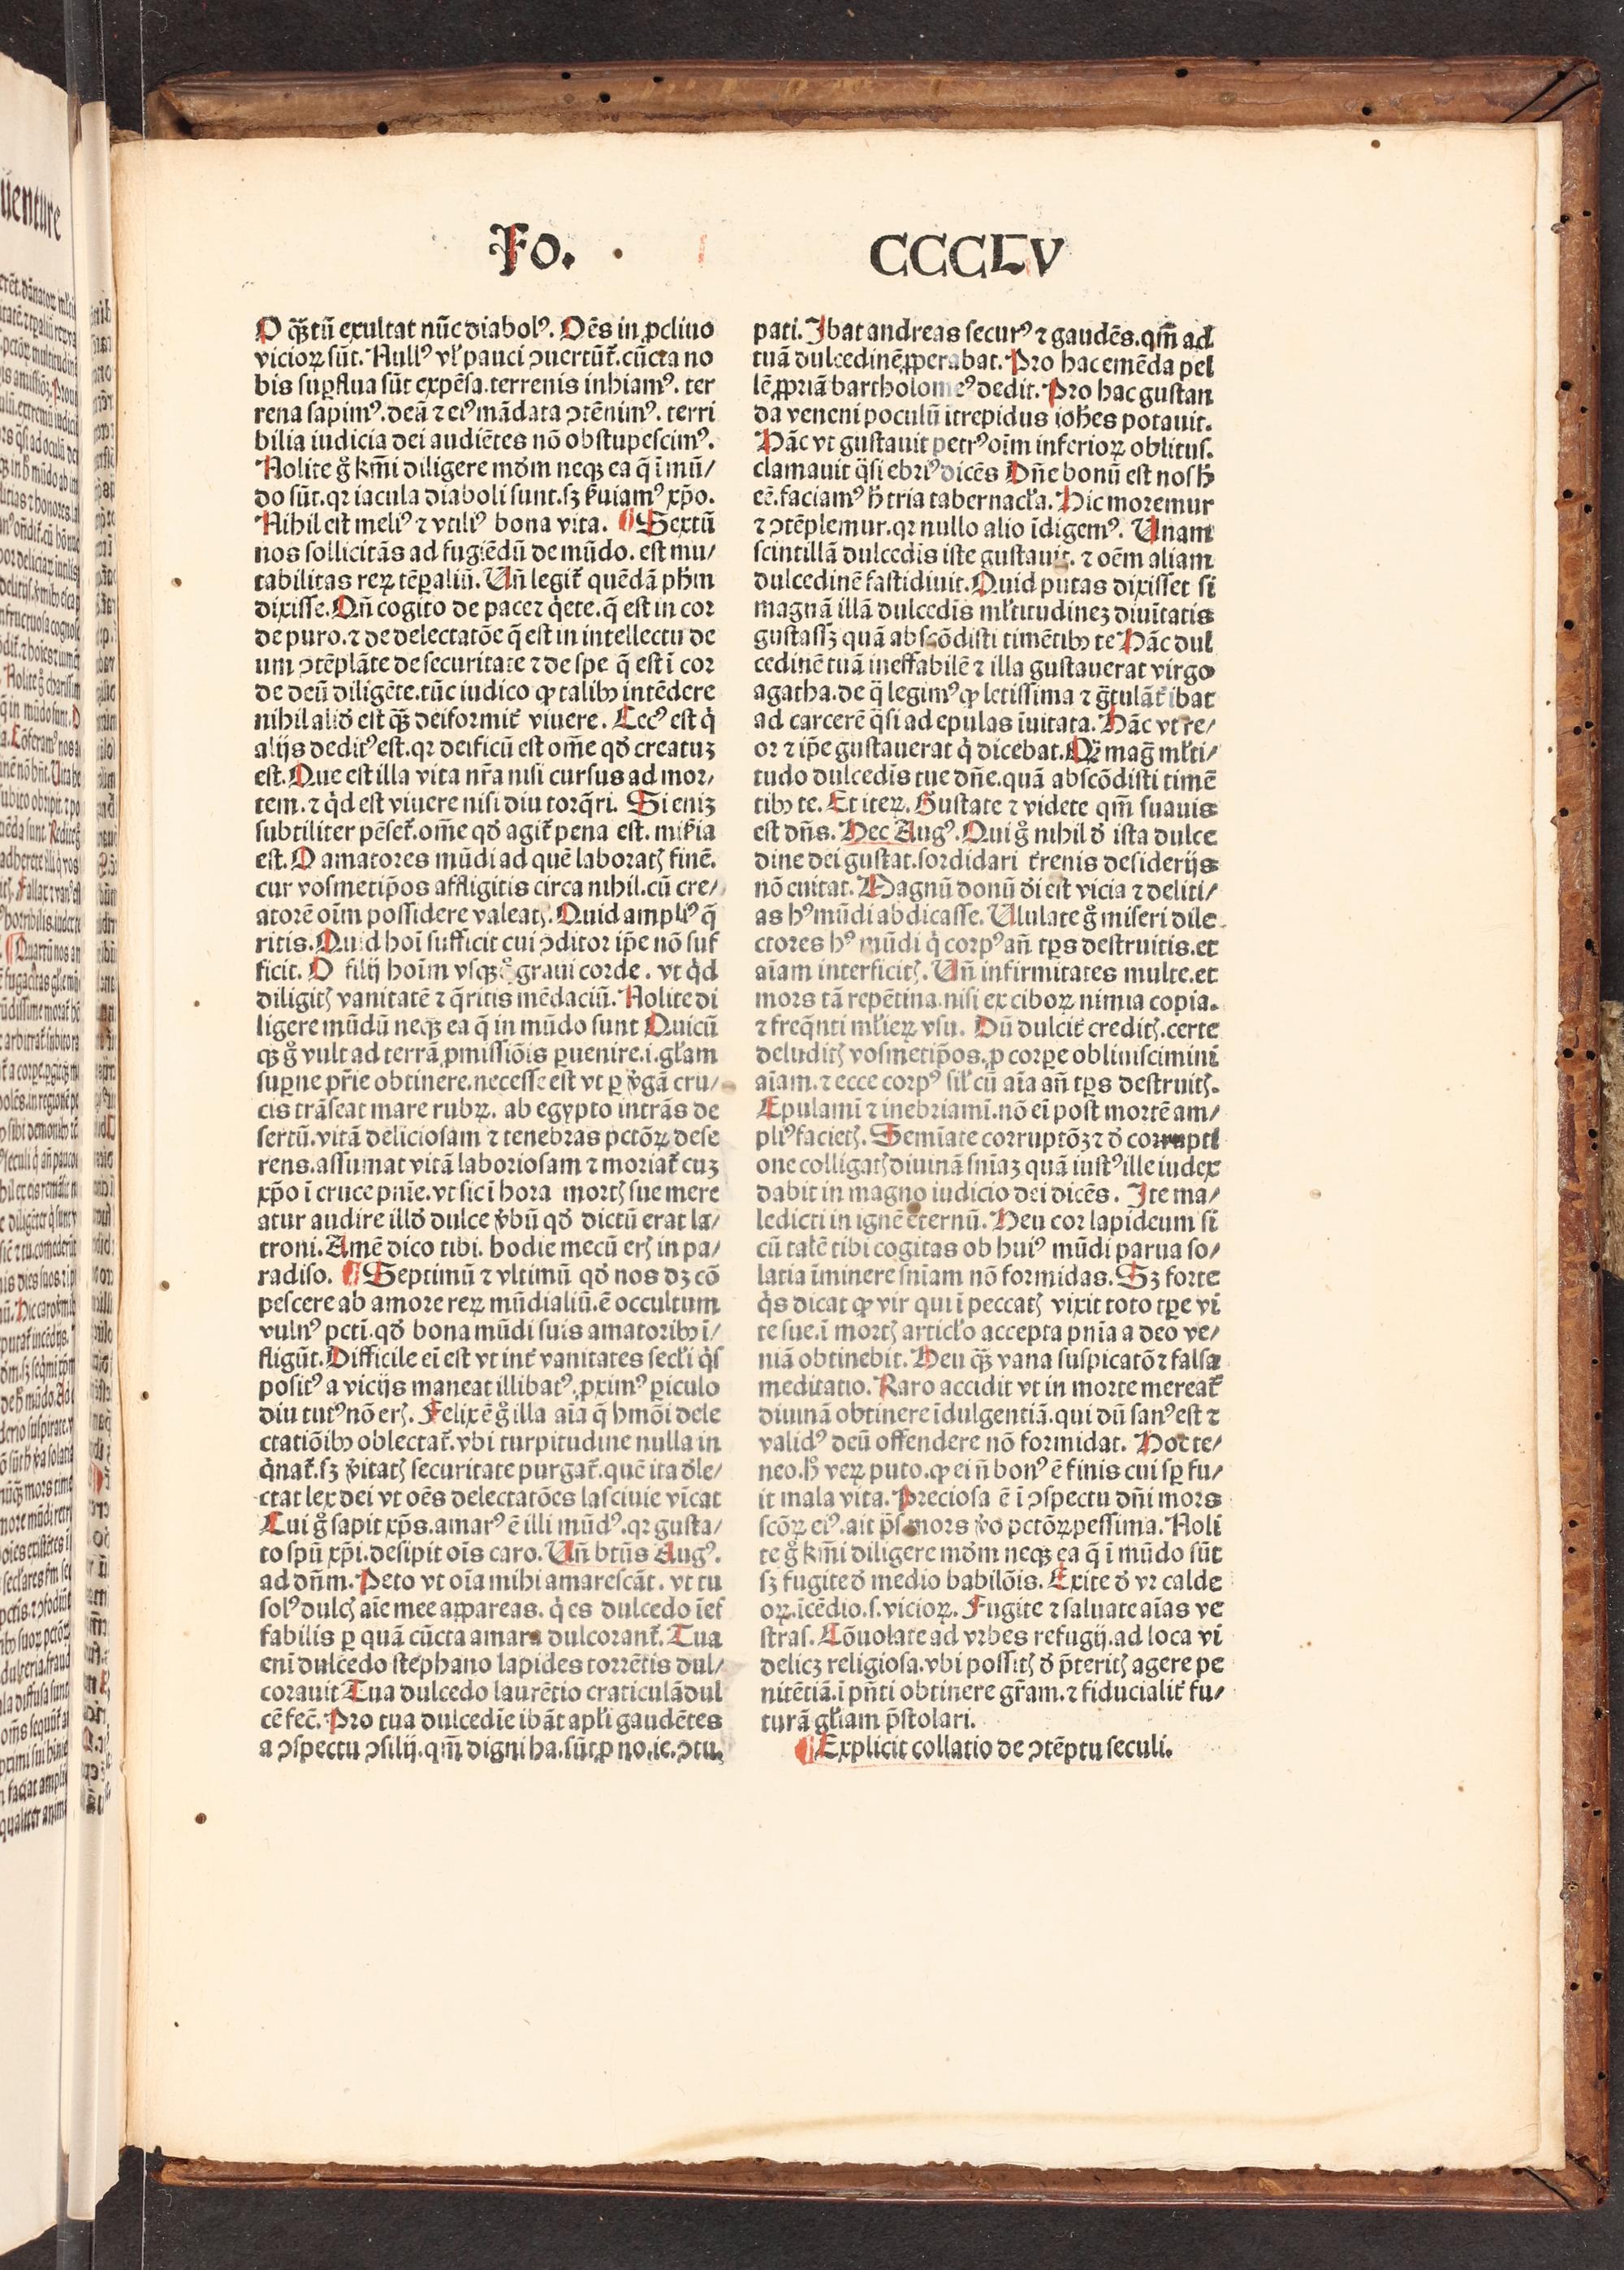 Fo. CCCLV
O qȝ̄tū exultat nūc diabolꝰ. Oēs in ꝓcliuo
vicioꝝ sūt. Nullꝰ vł pauci ↄuertūt̄. cūcta no
bis suꝑflua sūt expēsa. terrenis inhiamꝰ. ter
rena sapimꝰ. deū ⁊ eiꝰ mādata ↄtēnimꝰ. terri
bilia iudicia dei audiētes nō obstupescimꝰ.
Nolite gͦ kr̄mi diligere mūdm neqȝ ea q̄ ī mū/
do sūt. qꝛ iacula diaboli sunt. sȝ ẜuiamꝰ xp̄o.
Nihil est meliꝰ ⁊ vtiliꝰ bona vita. ¶ Sextū
nos sollicitās ad fugiēdū de mūdo. est mu/
tabilitas reꝝ tēꝑaliū. Vn̄ legit̄ quēdā ph̄m
dixisse. Qn̄ cogito de pace ⁊ qͥete. q̄ est in cor
de puro. ⁊ de delectatōe q̄ est in intellectu de
um ↄtēplāte de securitate ⁊ de spe q̄ est ī cor
de deū diligēte. tūc iudico ꝙ talibꝰ intēdere
nihil aliđ est qȝ̄ deiformit̄ viuere. Cecꝰ est qͥ
alijs deditꝰ est. qꝛ deificū est om̄e qđ creatuȝ
est. Que est illa vita nr̄a nisi cursus ad mor/
tem. ⁊ qͥd est viuere nisi diu torq̄ri. Si eniȝ
subtiliter pēset̄. om̄e qđ agit̄ pena est. miẜia
est. O amatores mūdi ad quē laboratꝭ finē.
cur vosmetip̄os affligitis circa nihil. cū cre/
atorē oīm possidere valeatꝭ. Quid ampliꝰ q̄
ritis. Quid hoī sufficit cui ↄditor ip̄e nō suf
ficit. O filij hoīm vsqȝquo graui corde. vt qͥd
diligitꝭ vanitatē ⁊ q̄ritis mēdaciū. Nolite di
ligere mūdū neqȝ ea q̄ in mūdo sunt Quicū
qȝ gͦ vult ad terrā ꝓmissiōis ꝑuenire. i. głam
suꝑne pr̄ie obtinere. necesse est vt ꝑ v̄gā cru/
cis trāseat mare rubꝝ. ab egypto intrās de
sertū. vitā deliciosam ⁊ tenebras pctōꝝ dese
rens. assumat vitā laboriosam ⁊ moriat̄ cuȝ
xp̄o ī cruce pn̄ie. vt sic ī hora mortꝭ sue mere
atur audire illđ dulce v̄bū qđ dictū erat la/
troni. Amē dico tibi. hodie mecū erꝭ in pa/
radiso. ¶ Septimū ⁊ vltimū qđ nos dȝ cō
pescere ab amore reꝝ mūdialiū. ē occultum
vulnꝰ pcti. qđ bona mūdi suis amatoribꝰ ī/
fligūt. Difficile eī est vt int̄ vanitates secłi qͥs
positꝰ a vicijs maneat illibatꝰ. ꝓximꝰ ꝑiculo
diu tutꝰ nō erꝭ. Felix ē gͦ illa aīa q̄ hmōi dele
ctatiōibꝰ oblectat̄. vbi turpitudine nulla in
qͥnat̄. sȝ v̄itatꝭ securitate purgat̄. quē ita đle/
ctat lex dei vt oēs delectatōes lasciuie vīcat
Cui gͦ sapit xp̄s. amarꝰ ē illi mūdꝰ. qꝛ gusta/
to spū xp̄i. desipit oīs caro. Vn̄ btūs Augꝰ.
ad dn̄m. Peto vt oīa mihi amarescāt. vt tu
solꝰ dulcꝭ aīe mee appareas. qͥ es dulcedo īef
fabilis ꝑ quā cūcta amara dulcorant̄. Tua
enī dulcedo stephano lapides torrētis dul/
corauit Tua dulcedo laurētio craticulā dul
cē fec̄. Pro tua dulcedīe ibāt apłi gaudētes
a ↄspectu ↄsilij. qm̄ digni ha. sūt ꝓ no. ie. ↄtu.
pati. Ibat andreas securꝰ ⁊ gaudēs. qm̄ ad
tuā dulcedinē ꝓꝑabat. Pro hac emēda pel
lē ꝓpriā bartholomeꝰ dedit. Pro hac gustan
da veneni poculū ītrepidus ioħes potauit.
Hāc vt gustauit petrꝰ oīm inferioꝝ oblitus.
clamauit q̄si ebriꝰ dicēs Dn̄e bonū est nos ħ
eē. faciamꝰ ħ tria tabernacła. Hic moremur
⁊ ↄtēplemur. qꝛ nullo alio īdigemꝰ. Unam
scintillā dulcedīs iste gustauit. ⁊ oēm aliam
dulcedinē fastidiuit. Quid putas dixisset si
magnā illā dulcedīs młtitudineȝ diuītatis
gustassȝ quā abscōdisti timētibꝰ te Hāc dul
cedinē tuā ineffabilē ⁊ illa gustauerat virgo
agatha. de q̄ legimꝰ ꝙ letissima ⁊ ḡtulāt̄ ibat
ad carcerē q̄si ad epulas īuitata. Hāc vt re/
or ⁊ ip̄e gustauerat qͥ dicebat. Qȝ̄ maḡ młti/
tudo dulcedīs tue dn̄e. quā abscōdisti timē
tibꝰ te. Et iteꝝ. Gustate ⁊ videte qm̄ suauis
est dn̄s. Hec Augꝰ. Qui gͦ nihil đ ista dulce
dine dei gustat. sordidari t̄renis desiderijs
nō euitat. Magnū donū đi est vicia ⁊ deliti/
as hꝰ mūdi abdicasse. Ululate gͦ miseri dile
ctores hꝰ mūdi qͥ corpꝰ an̄ tp̄s destruitis. et
aīam interficitꝭ. Vn̄ infirmitates multe. et
mors tā repētina. nisi ex ciboꝝ nimia copia.
⁊ freq̄nti młieꝝ vsu. Dū dulcit̄ creditꝭ. certe
deluditꝭ vosmetip̄os. ꝓ corꝑe obliuiscimini
aīam. ⁊ ecce corpꝰ sił cū aīa an̄ tp̄s destruitꝭ.
Epulamī ⁊ inebriamī. nō eī post mortē am/
pliꝰ facietꝭ. Semīate corruptōȝ ⁊ đ corrupti
one colligatꝭ diuinā sn̄iaȝ quā iustꝰ ille iudex
dabit in magno iudicio dei dicēs. Ite ma/
ledicti in ignē eternū. Heu cor lapideum si
cū talē tibi cogitas ob huiꝰ mūdi parua so/
latia īminere sn̄iam nō formidas. Sȝ forte
qͥs dicat ꝙ vir qui ī peccatꝭ vixit toto tꝑe vi
te sue. ī mortꝭ articło accepta pn̄ia a deo ve/
niā obtinebit. Heu qȝ̄ vana suspicatō ⁊ falsa
meditatio. Raro accidit vt in morte mereat̄
diuinā obtinere īdulgentiā. qui dū sanꝰ est ⁊
validꝰ deū offendere nō formidat. Hoc te/
neo. ħ veꝝ puto. ꝙ ei n̄ bonꝰ ē finis cui sꝑ fu/
it mala vita. Preciosa ē ī ↄspectu dn̄i mors
scōꝝ eiꝰ. ait p̄s. mors v̄o pctōꝝ pessima. Noli
te gͦ kr̄mi diligere mđm neqȝ ea q̄ ī mūdo sūt
sȝ fugite đ medio babilōis. Exite đ vr calde
oꝝ. īcēdio. s. vicioꝝ. Fugite ⁊ saluate aīas ve
stras. Cōuolate ad vrbes refugij. ad loca vi
delicȝ religiosa. vbi possitꝭ đ p̄teritꝭ agere pe
nitētiā. ī pn̄ti obtinere gr̄am. ⁊ fiducialit̄ fu/
turā głiam p̄stolari.
¶ Explicit collatio de ↄtēptu seculi.